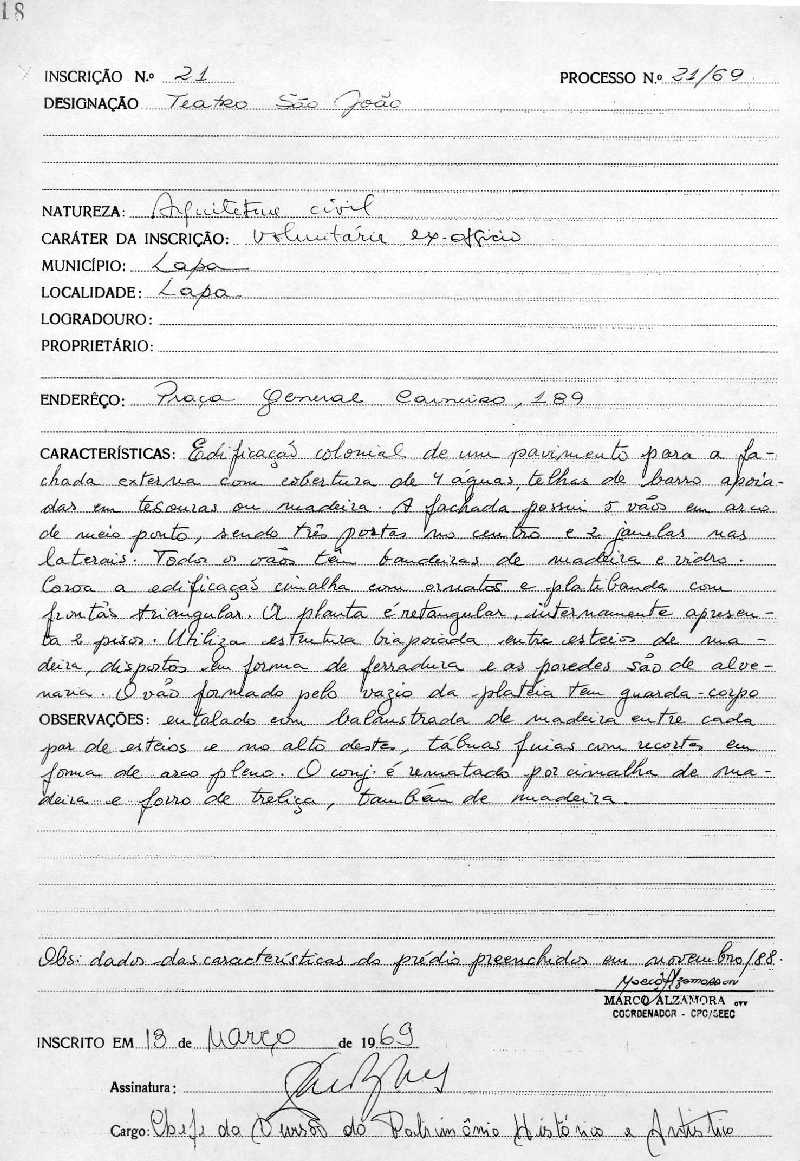 18
INSCRIÇÃO N.º 21 PROCESSO N.º 21/69
DESIGNAÇÃO Teatro São João
NATUREZA: Arquitetura civil
CARÁTER DA INSCRIÇÃO: voluntária ex-officio
MUNICÍPIO: Lapa
LOCALIDADE: Lapa.
LOGRADOURO:
PROPRIETÁRIO:
ENDERÊÇO: Praça General Carneiro, 189
CARACTERÍSTICAS: Edificação colonial de um pavimento para a fa-
chada externa com cobertura de 4 águas, telhas de barro apoia-
das em tesouras ou madeira. A fachada possui 5 vãos em arco
de meio ponto, sendo três portas no centro e 2 janelas nas
laterais. Todos os vãos têm bandeiras de madeira e vidro.
Coroa a edificação cimalha com ornatos e platibanda com
frontão triangular. A planta é retangular, internamente apresen-
ta 2 pisos. Utiliza estrutura biapoiada entre esteios de ma-
deira, dispostos em forma de ferradura e as paredes são de alve-
naria. O vão formado pelo vazio da platéia tem guarda-corpo
OBSERVAÇÕES: entalado com balaustrada de madeira entre cada
par de esteios e no alto destes, tábuas com recortes em
forma de arco pleno. O conj. é rematado por cimalha de ma-
deira e forro de treliça, também de madeira.
Obs: dados das características do prédio preenchidos em novembro/88.
MARCO ALZAMORA
COORDENADOR - CPC/SEEC
INSCRITO EM 13 de Março de 1969
Assinatura:
Cargo: Chefe da Divisão do Patrimônio Histórico e Artístico